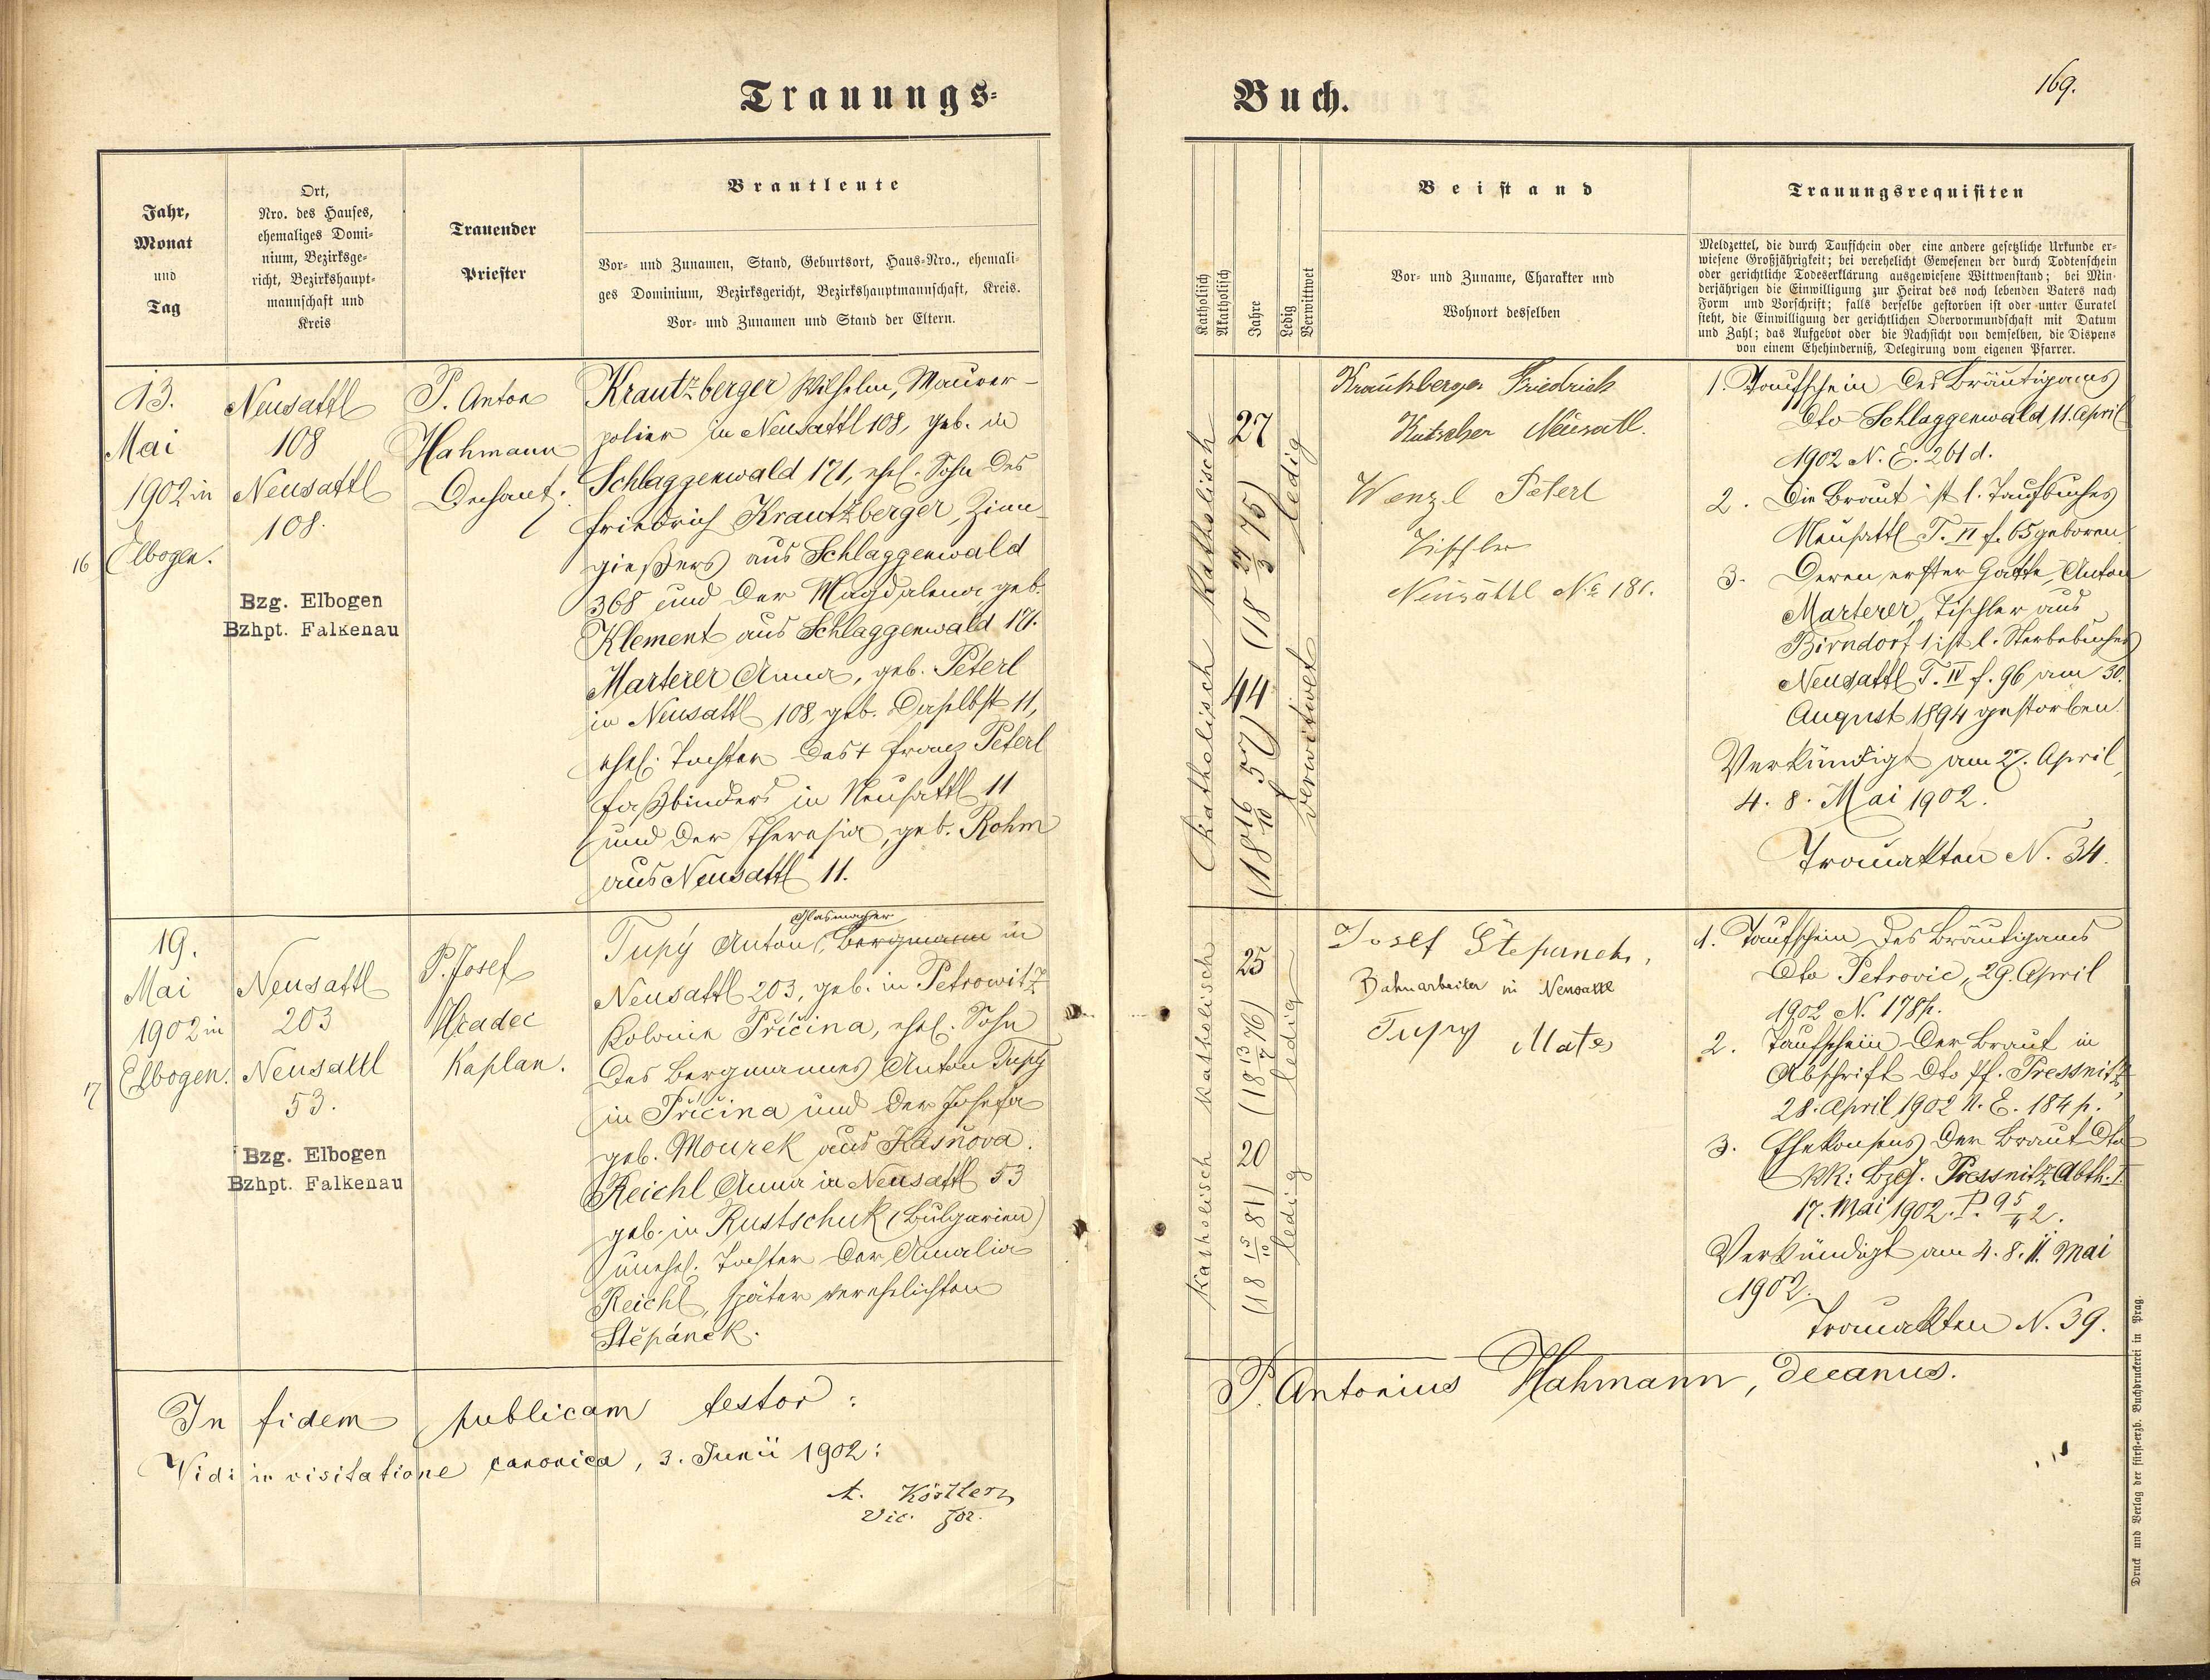 Trauungs-
Jahr,
Monat
und
Tag
Ort,
Nro. des Hauses,
ehemaliges Domi-
nium, Bezirksge-
richt, Bezirkshaupt-
mannschaft und
Kreis
Trauender
Priester
Brautleute
Vor- und Zunamen, Stand, Geburtsort, Haus-Nro., ehemali-
ges Dominium, Bezirksgericht, Bezirkshauptmannschaft, Kreis.
Vor- und Zunamen und Stand der Eltern.
16
13.
Mai
1902 in
Elbogen.
Neusattl
108
Neusattl
108.
Bzg. Elbogen
Bzhpt. Falkenau
P. Anton
Hahmann
Dechant.
Krautzberger Wilhelm, Maurer-
polier in Neusattl 108, geb. in
Schlaggenwald 171, ehel. Sohn des
Friedrich Krautzberger, Zinn-
gießers aus Schlaggenwald
368 und der Magdalena geb.
Klement aus Schlaggenwald 171.
Marterer Anna, geb. Peterl
in Neusattl 108, geb. daselbst 11,
ehel. Tochter des † Franz Peterl
Faßbinders in Neusattl 11
und der Theresia, geb. Rohm
aus Neusattl 11.
17
19.
Mai
1902 in
Elbogen.
Neusattl
203
Neusattl
53.
Bzg. Elbogen
Bzhpt. Falkenau
P. Josef
Hradec
Kaplan.
Glasmacher
Tupý Anton, Bergmann in
Neusattl 203, geb. in Petrowitz
Kolonie Příčina, ehel. Sohn
des Bergmannes Anton Tupý
in Příčina und der Josefa
geb. Mourek aus Kasňova.
Reichl Anna in Neusattl 53
geb. in Rustschuk (Bulgarien)
unehel. Tochter der Amalia
Reichl, später verehelichten
Štěpánek.
In fidem publicam testor:
Vidi in visitatione canonica, 3. Junii 1902:
A. Köstler
Vic. for.
Buch.
169.
Katholisch
Akatholisch
Jahre
Ledig
Verwittwet
Beistand
Vor- und Zuname, Charakter und
Wohnort desselben
Trauungsrequisiten
Meldzettel, die durch Taufschein oder eine andere gesetzliche Urkunde er-
wiesene Großjährigkeit; bei verehelicht Gewesenen der durch Todtenschein
oder gerichtliche Todeserklärung ausgewiesene Wittwenstand; bei Min-
derjährigen die Einwilligung zur Heirat des noch lebenden Vaters nach
Form und Vorschrift; falls derselbe gestorben ist oder unter Curatel
steht, die Einwilligung der gerichtlichen Obervormundschaft mit Datum
und Zahl; das Aufgebot oder die Nachsicht von demselben, die Dispens
von einem Ehehinderniß, Delegirung vom eigenen Pfarrer.
Katholisch
27
(18 27/3 75)
ledig
Katholisch
44
(18 16/10 57)
verwitwet
Krautzberger Friedrich
Kutscher Neusatl.
Wenzl Peterl
Tischler
Neusattl No 181.
1. Taufschein des Bräutigams
dto Schlaggenwald, 11. April
1902 N. E. 261 d.
2. Die Braut ist l. Taufbuches
Neusattl T. II f. 65 geboren
3. Deren erster Gatte, Anton
Marterer, Tischler aus
Birndorf 1 ist l. Sterbebuches
Neusattl T. IV f. 96 am 30.
August 1894 gestorben.
Verkündigt am 27. April,
4. 8. Mai 1902.
Trauakten N. 34.
Katholisch
25
(18 13/7 76)
ledig
Katholisch
20
(18 15/10 81)
ledig
Josef Štepanek,
Bahnarbeiter in Neusattl
Tupy Mates
1. Taufschein des Bräutigams
dto Petrovic, 29. April
1902 N. 178 p.
2. Taufschein der Braut in
Abschrift dto Pf. Pressnitz,
28. April 1902 N. E. 184 p.
3. Ehekonsens der Braut dto
kk: Bzg. Pressnitz Abth. I
17. Mai 1902. P. 95/4 2.
Verkündigt am 4. 8. 11. Mai
1902.
Trauakten N. 39.
P. Antonius Hahmann, decanus.
Druck und Verlag der fürst-erzb. Buchdruckerei in Prag.